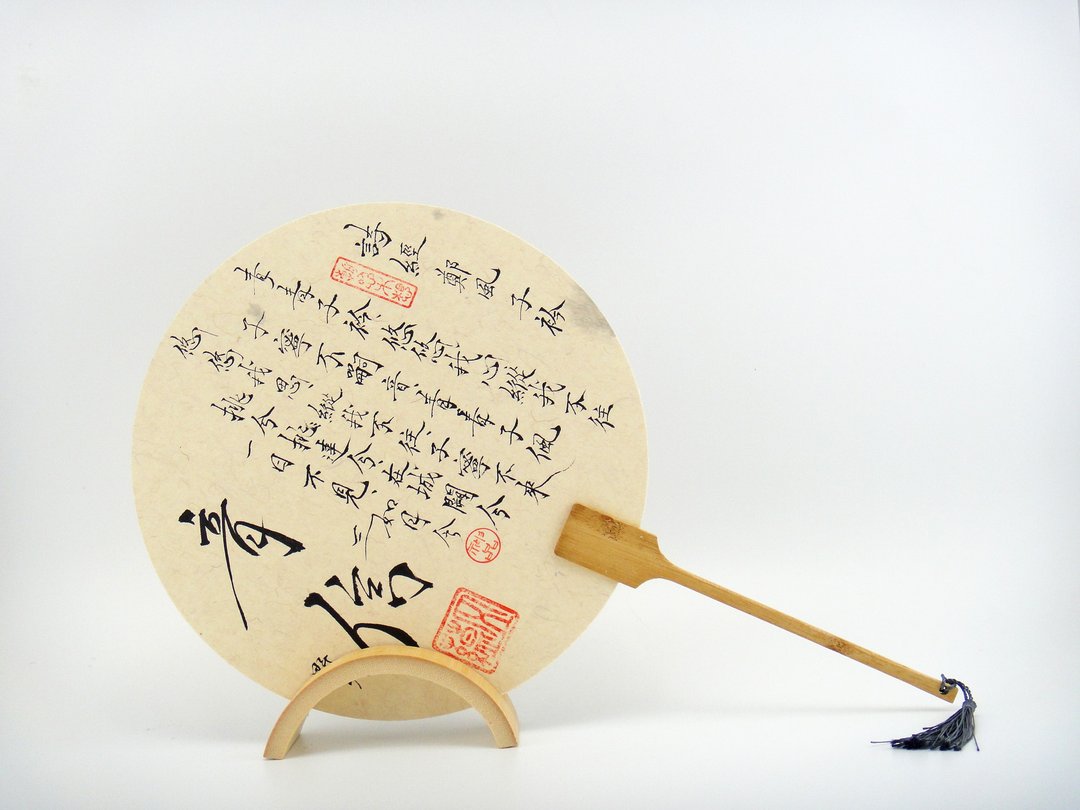 詩經 鄭風 子衿
青青子衿、悠悠我心、縱我不往
子寧不嗣音、青青子佩
悠悠我思、縱我不往、子寧不來
挑兮達兮、在城闕兮
一日不見、如三月兮